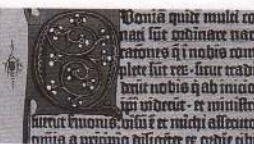 Quoniā quidē multi co
nati sūt ordinare nar
rationes q̄ i nobis com
plete sūt reᷣ. sicut tradi
derūt nobis q̄ ab inicio
ip̄i viderūt. et ministri
fuerūt ſmonis. visū ē et michi assecuto
omnia a prīcipio diligēter ex ordīe tibi